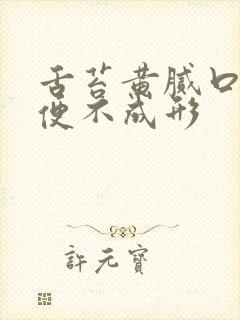 舌苔黄腻口
便不成形
許元寶